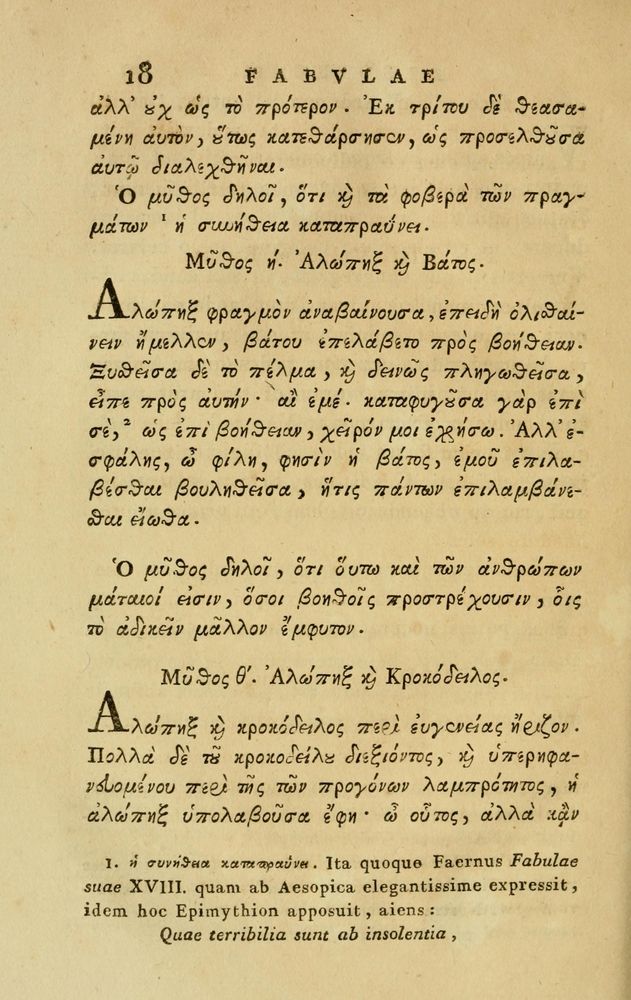 18 FABVLAE
ἀλλ' οὐχ ὡς τὸ πρότερον. Ἐκ τρίτου δὲ θεασα-
μένη αὐτὸν, οὕτως κατεθάρσησεν, ὡς προσελθοῦσα
αὐτῷ διαλεχθῆναι.
Ὁ μῦθος δηλοῖ, ὅτι καὶ τὰ φοβερὰ τῶν πραγ-
μάτων ¹ ἡ συνήθεια καταπραΰνει.
Μῦθος ή. Ἀλώπηξ καὶ Βάτος.
Ἀλώπηξ φραγμὸν ἀναβαίνουσα, ἐπειδὴ ὀλισθαί-
νειν ἤμελλεν, βάτου ἐπελάβετο πρὸς βοήθειαν.
Ξυσθεῖσα δὲ τὸ πέλμα, καὶ δεινῶς πληγωθεῖσα,
εἶπε πρὸς αὐτήν· αἲ ἐμέ. καταφυγοῦσα γὰρ ἐπὶ
σὲ,² ὡς ἐπὶ βοήθειαν, χεῖρόν μοι ἐχρήσω. Ἀλλ' ἐ-
σφάλης, ὦ φίλη, φησὶν ἡ βάτος, ἐμοῦ ἐπιλα-
βέσθαι βουληθεῖσα, ἥτις πάντων ἐπιλαμβάνε-
σθαι εἴωθα.
Ὁ μῦθος δηλοῖ, ὅτι ὅυτω καὶ τῶν ἀνθρώπων
μάταιοί εἰσιν, ὅσοι βοηθοῖς προστρέχουσιν, οἷς
τὸ ἀδικεῖν μᾶλλον ἔμφυτον.
Μῦθος θ'. Ἀλώπηξ καὶ Κροκόδειλος.
Ἀλώπηξ καὶ κροκόδειλος περὶ ευγενείας ἤριζον.
Πολλὰ δὲ τοῦ κροκοδείλου διεξιόντος, καὶ ὑπερηφα-
νευομένου περὶ τῆς τῶν προγόνων λαμπρότητος, ἡ
ἀλώπηξ ὑπολαβοῦσα ἔφη· ὦ οὗτος, ἀλλὰ κἂν
1. ἡ συνήθεια καταπραΰνει. Ita quoque Faernus Fabulae
suae XVIII. quam ab Aesopica elegantissime expressit,
idem hoc Epimythion apposuit, aiens:
Quae terribilia sunt ab insolentia,